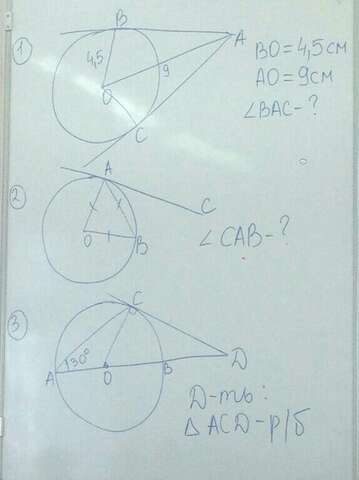 1
B
A
4,5
9
O
C
BO=4,5см
AO=9см
∠BAC-?
2
A
C
O
B
∠CAB-?
3
C
30°
A
O
B
D
Д-ть:
△ACD-р/б